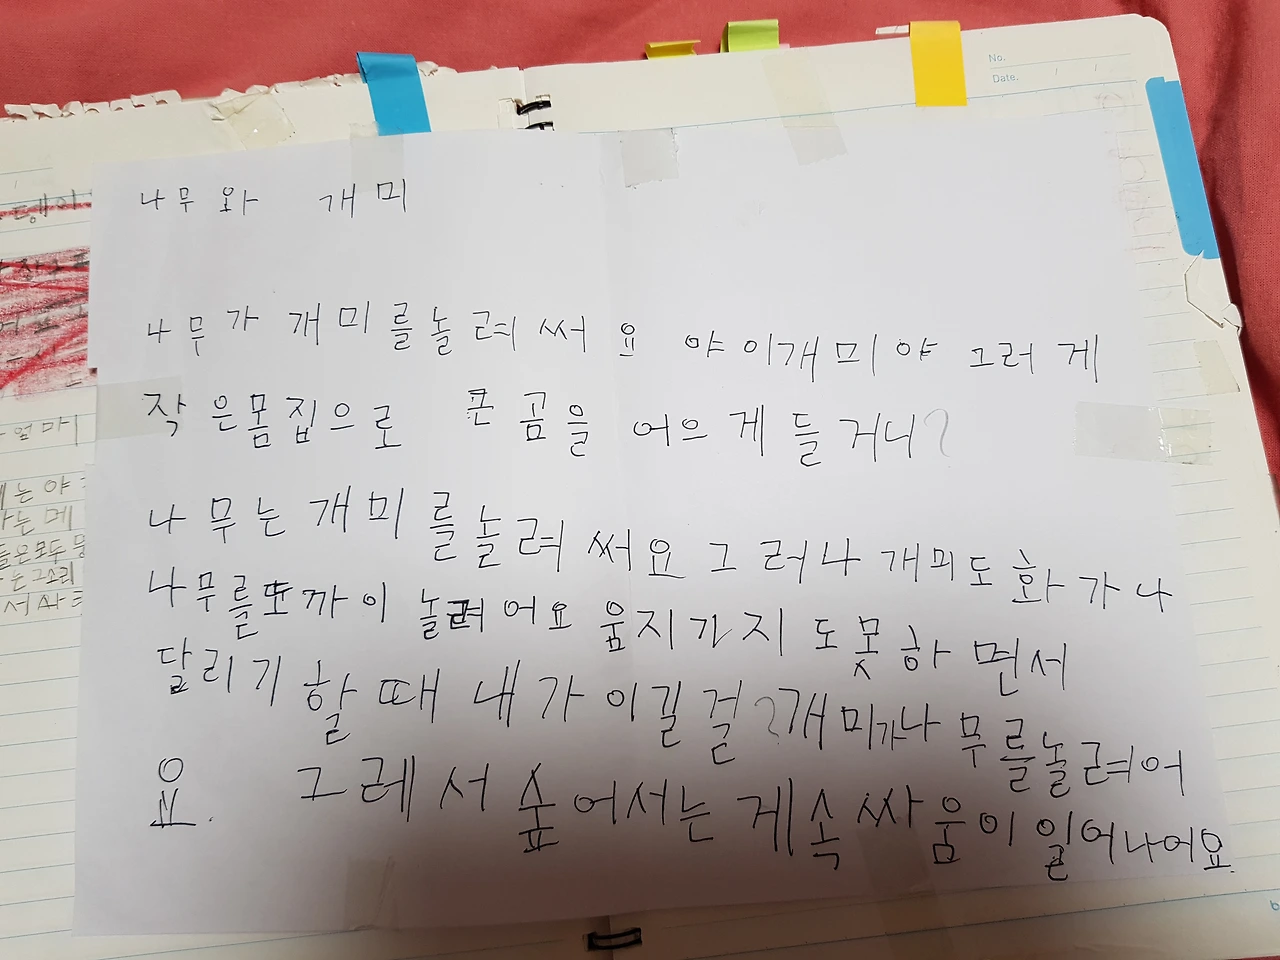 No.
Date.
나무와 개미
나무가 개미를놀려써요 야이개미야 그러게
작은몸집으로 큰곰을 어으게들거니?
나무는개미를놀려써요그러나개미도화가나
나무를또까이놀려어요움지기지도못하면서
달리기할때내가이길걸?개미가나무를놀려어
요. 그레서숲어서는게속싸움이일어나어요.
엄마